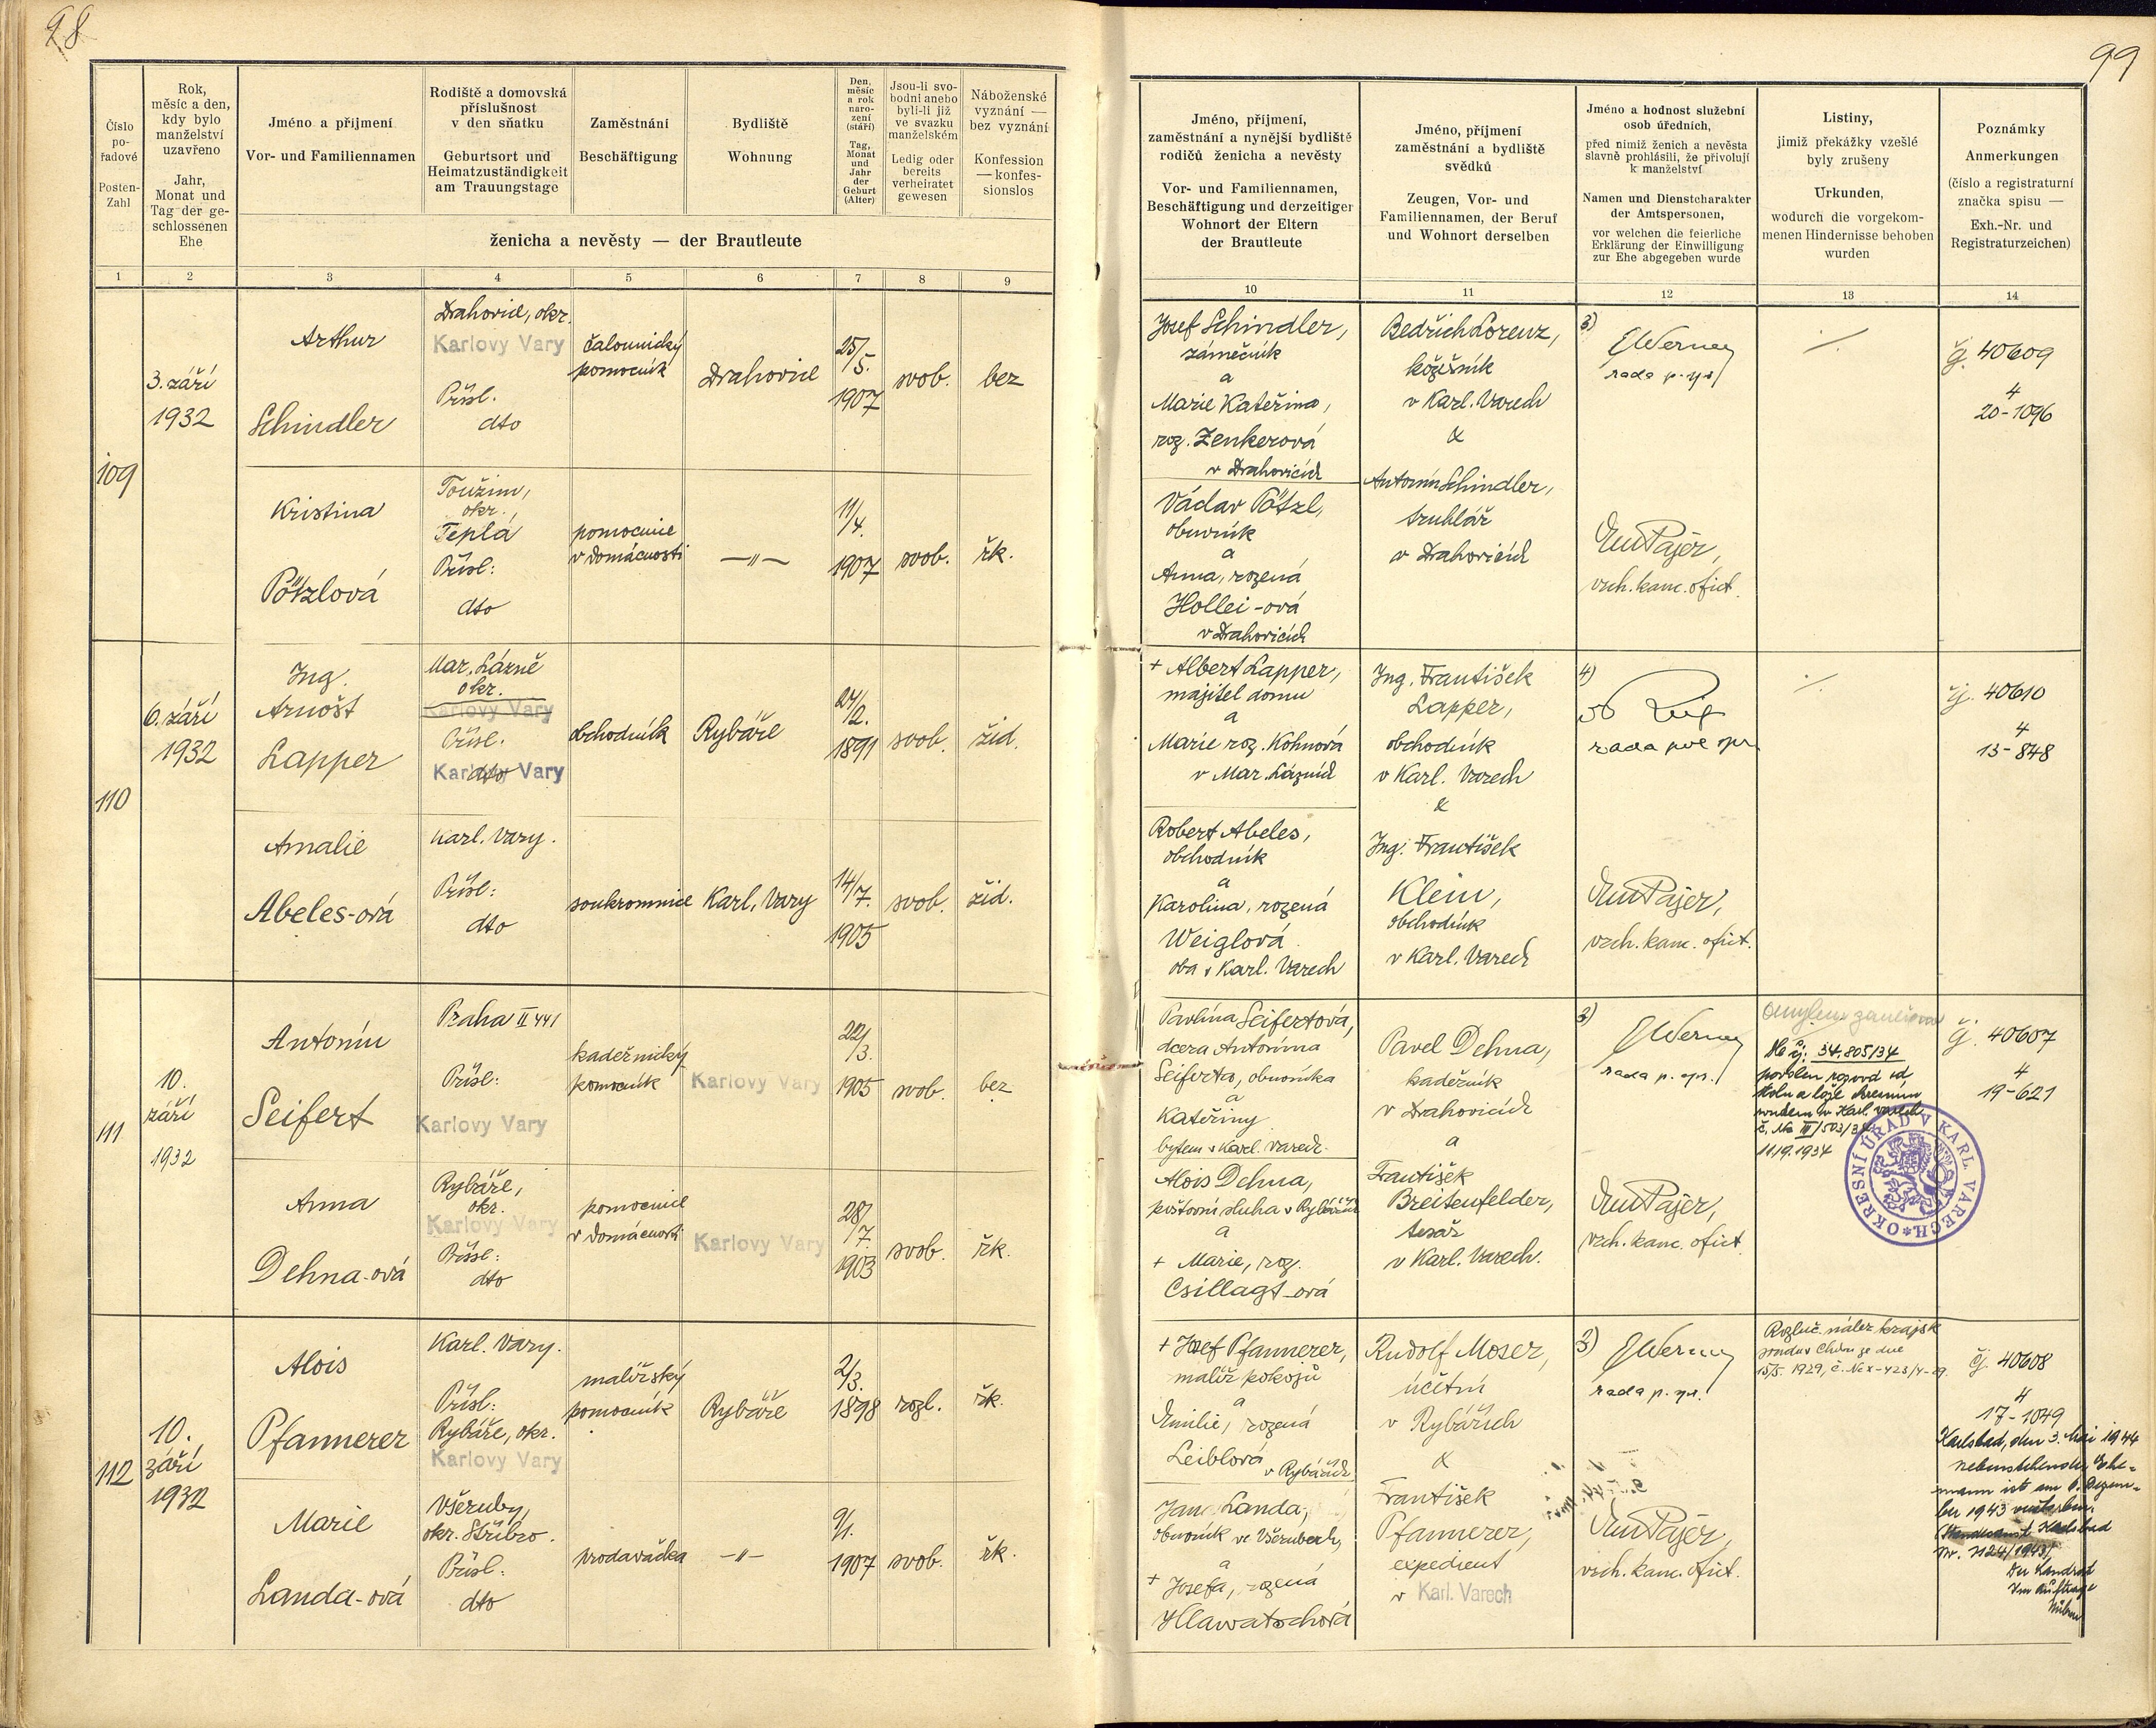 98
99
Číslo
po-
řadové
Posten-
Zahl
Rok,
měsíc a den,
kdy bylo
manželství
uzavřeno
Jahr,
Monat und
Tag der ge-
schlossenen
Ehe
Jméno a přijmení
Vor- und Familiennamen
Rodiště a domovská
příslušnost
v den sňatku
Geburtsort und
Heimatzuständigkeit
am Trauungstage
Zaměstnání
Beschäftigung
Bydliště
Wohnung
Den,
měsíc
a rok
naro-
zení
(stáří)
Tag,
Monat
und
Jahr
der
Geburt
(Alter)
Jsou-li svo-
bodni anebo
byli-li již
ve svazku
manželském
Ledig oder
bereits
verheiratet
gewesen
Náboženské
vyznání —
bez vyznání
Konfession
— konfes-
sionslos
ženicha a nevěsty — der Brautleute
Jméno, příjmení,
zaměstnání a nynější bydliště
rodičů ženicha a nevěsty
Vor- und Familiennamen,
Beschäftigung und derzeitiger
Wohnort der Eltern
der Brautleute
Jméno, příjmení
zaměstnání a bydliště
svědků
Zeugen, Vor- und
Familiennamen, der Beruf
und Wohnort derselben
Jméno a hodnost služební
osob úředních,
před nimiž ženich a nevěsta
slavně prohlásili, že přivolují
k manželství
Namen und Dienstcharakter
der Amtspersonen,
vor welchen die feierliche
Erklärung der Einwilligung
zur Ehe abgegeben wurde
Listiny,
jimiž překážky vzešlé
byly zrušeny
Urkunden,
wodurch die vorgekom-
menen Hindernisse behoben
wurden
Poznámky
Anmerkungen
(číslo a registraturní
značka spisu —
Exh.-Nr. und
Registraturzeichen)
1 2 3 4 5 6 7 8 9 10 11 12 13 14
109
3. září
1932
Arthur
Schindler
Drahovice, okr.
Karlovy Vary
Přísl.
dto
čalounický
pomocník
Drahovice
25/5.
1907
svob.
bez
Josef Schindler,
zámečník
a
Marie Kateřina,
roz. Zenkerová
v Drahovicích
Bedřich Lorenz,
kožešník
v Karl. Varech
&
Antonín Schindler,
truhlář
v Drahovicích
3)
Werner
rada p. spr.
./.
čj. 40609
4
20-1096
Kristina
Pötzlová
Toužim,
okr.,
Teplá
Přísl:
dto
pomocnice
v domácnosti
—"—
11/4.
1907
svob.
řk.
Václav Pötzl,
obuvník
a
Anna, rozená
Hollei-ová
v Drahovicích
Em Pajer,
vrch. kanc. ofict.
110
6. září
1932
Ing.
Arnošt
Lapper
Mar. Lázně
okr.
Karlovy Vary
Přísl.
dto
Karlovy Vary
obchodník
Rybáře
24/2.
1891
svob.
žid.
+ Albert Lapper,
majitel domu
a
Marie roz. Kohnová
v Mar. Lázních
Ing. František
Lapper,
obchodník
v Karl. Varech
&
Ing. František
Klein,
obchodník
v Karl. Varech
4)
rada pol. spr.
./.
čj. 40610
4
13-848
Amalie
Abeles-ová
Karl. Vary.
Přísl:
dto
soukromnice
Karl. Vary
14/7.
1905
svob.
žid.
Robert Abeles,
obchodník
a
Karolina, rozená
Weiglová
oba v Karl. Varech
Em Pajer,
vrch. kanc. ofict.
111
10.
září
1932
Antonín
Seifert
Praha II 441
Přísl:
Karlovy Vary
kadeřnický
pomocník
Karlovy Vary
22/3.
1905
svob.
bez
Pavlína Seifertová,
dcera Antonína
Seiferta, obuvníka
a
Kateřiny
bytem v Karl. Varech.
Pavel Dehna,
kadeřník
v Drahovicích
a
František
Breitenfelder,
tesař
v Karl. Varech.
3)
Werner
rada p. spr.
Omylem zaneseno
čj. 34.805/34
povolen rozvod od
stolu a lože okresním
soudem v Karl. Varech
č. Nc III/503/34
11.9.1934
OKRESNÍ ÚŘAD V KARL. VARECH
čj. 40607
4
19-621
Anna
Dehna-ová
Rybáře,
okr.
Karlovy Vary
Přísl:
dto
pomocnice
v domácnosti
Karlovy Vary
28/7.
1903
svob.
řk.
Alois Dehna,
poštovní sluha v Rybářích
a
+ Marie, roz.
Csillagt-ová
Em Pajer,
vrch. kanc. ofict.
112
10.
září
1932
Alois
Pfannerer
Karl. Vary.
Přísl:
Rybáře, okr.
Karlovy Vary
malířský
pomocník
Rybáře
2/3.
1898
rozl.
řk.
+ Josef Pfannerer,
malíř pokojů
a
Emilie, rozená
Leiblová
v Rybářích
Rudolf Moser,
účetní
v Rybářích
&
František
Pfannerer,
expedient
v Karl. Varech
3)
Werner
rada p. spr.
Rozluč. nález krajsk.
soudu v Chebu ze dne
15/5. 1929, č. Nc x-423/4-29.
čj. 40608
4
17-1049
Karlsbad, den 3. Mai 1944
nebenstehender Ehe-
mann ist am 8. Dezem-
ber 1943 verstorben.
Standesamt Karlsbad
Nr. 1124/1943/
Der Landrat
Im Auftrage
Marie
Landa-ová
Všeruby,
okr. Stříbro.
Přísl:
dto
prodavačka
—"—
9/1.
1907
svob.
řk.
Jan Landa,
obuvník ve Všerubech,
a
+ Josefa, rozená
Hlawatschová
Em Pajer,
vrch. kanc. ofict.